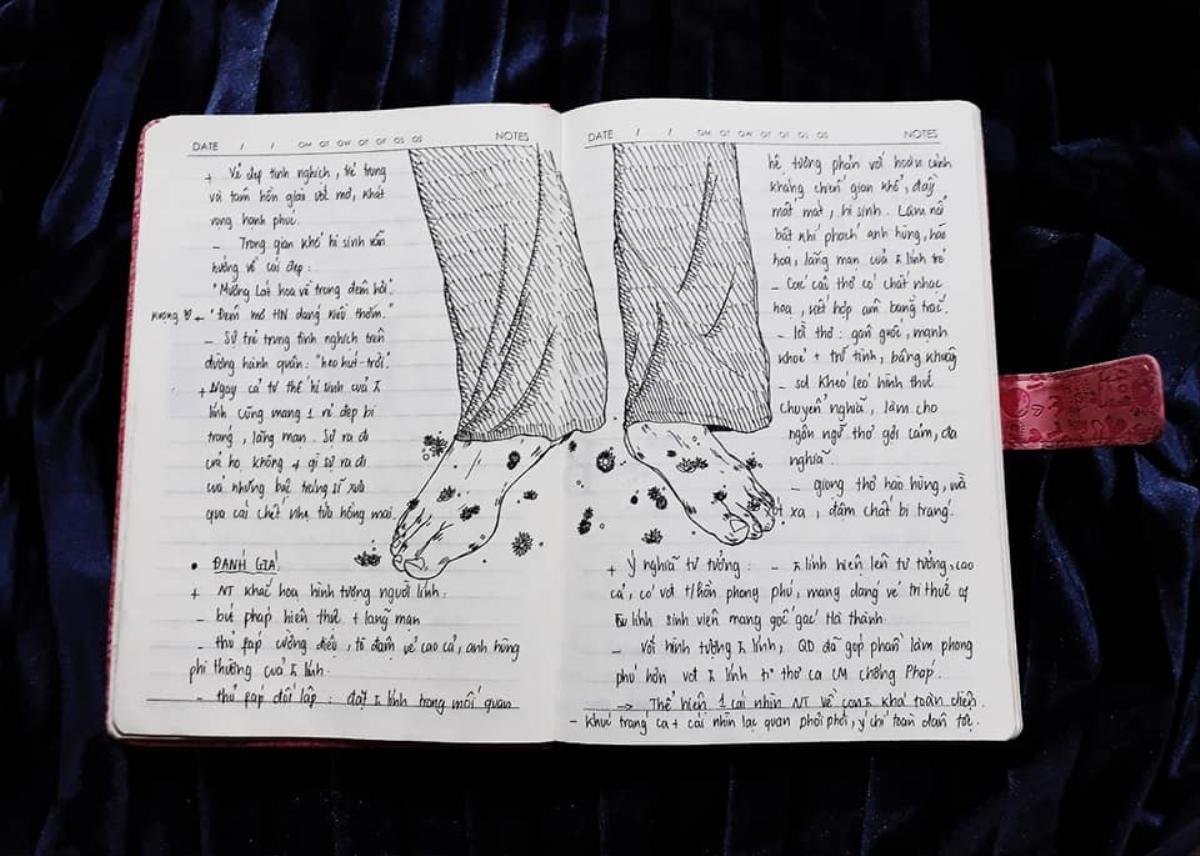 DATE / / NOTES
+ Vẻ đẹp tinh nghịch, trẻ trung
và tâm hồn giàu ước mơ, khát
vọng hạnh phúc.
– Trong gian khổ hi sinh vẫn
hướng về cái đẹp:
"Mường Lát hoa về trong đêm hơi".
"Đêm mơ HN dáng kiều thơm."
– Sự trẻ trung tinh nghịch trên
đường hành quân: "heo hút - trời".
+ Ngay cả tư thế hi sinh của
lính cũng mang 1 vẻ đẹp bi
tráng, lãng mạn. Sự ra đi
của họ không ≠ gì sự ra đi
của những bậc tráng sĩ xưa
qua cái chết nhẹ tựa hồng mao.
• ĐÁNH GIÁ:
+ NT khắc hoạ hình tượng người lính:
– bút pháp hiện thực + lãng mạn
– thủ fáp cường điệu, tô đậm vẻ cao cả, anh hùng
phi thường của lính.
– thủ fáp đối lập: đặt lính trong mối quan
DATE / / NOTES
hệ tương phản với hoàn cảnh
kháng chiến gian khổ, đầy
mất mát, hi sinh. Làm nổi
bật khí phách anh hùng, hào
hoa, lãng mạn của lính trẻ
– Các câu thơ có chất nhạc
hoạ, kết hợp âm bằng trắc.
– lời thơ: gân guốc, mạnh
khoẻ + trữ tình, bâng khuâng
– sd khéo léo hình thức
chuyển nghĩa, làm cho
ngôn ngữ thơ gợi cảm, đa
nghĩa.
– giọng thơ hào hùng, mà
xót xa, đậm chất bi tráng.
+ Ý nghĩa tư tưởng: – lính hiện lên tư tưởng, cao
cả, có vđt t/hồn phong phú, mang dáng vẻ trí thức of
lính sinh viên mang gốc gác Hà thành.
– Với hình tượng lính, QD đã góp phần làm phong
phú hơn vđt lính tr thơ ca CM chống Pháp.
→ Thể hiện 1 cái nhìn NT về con khá toàn diện.
– Khúc tráng ca + cái nhìn lạc quan phơi phới, ý chí toàn dân tộc.